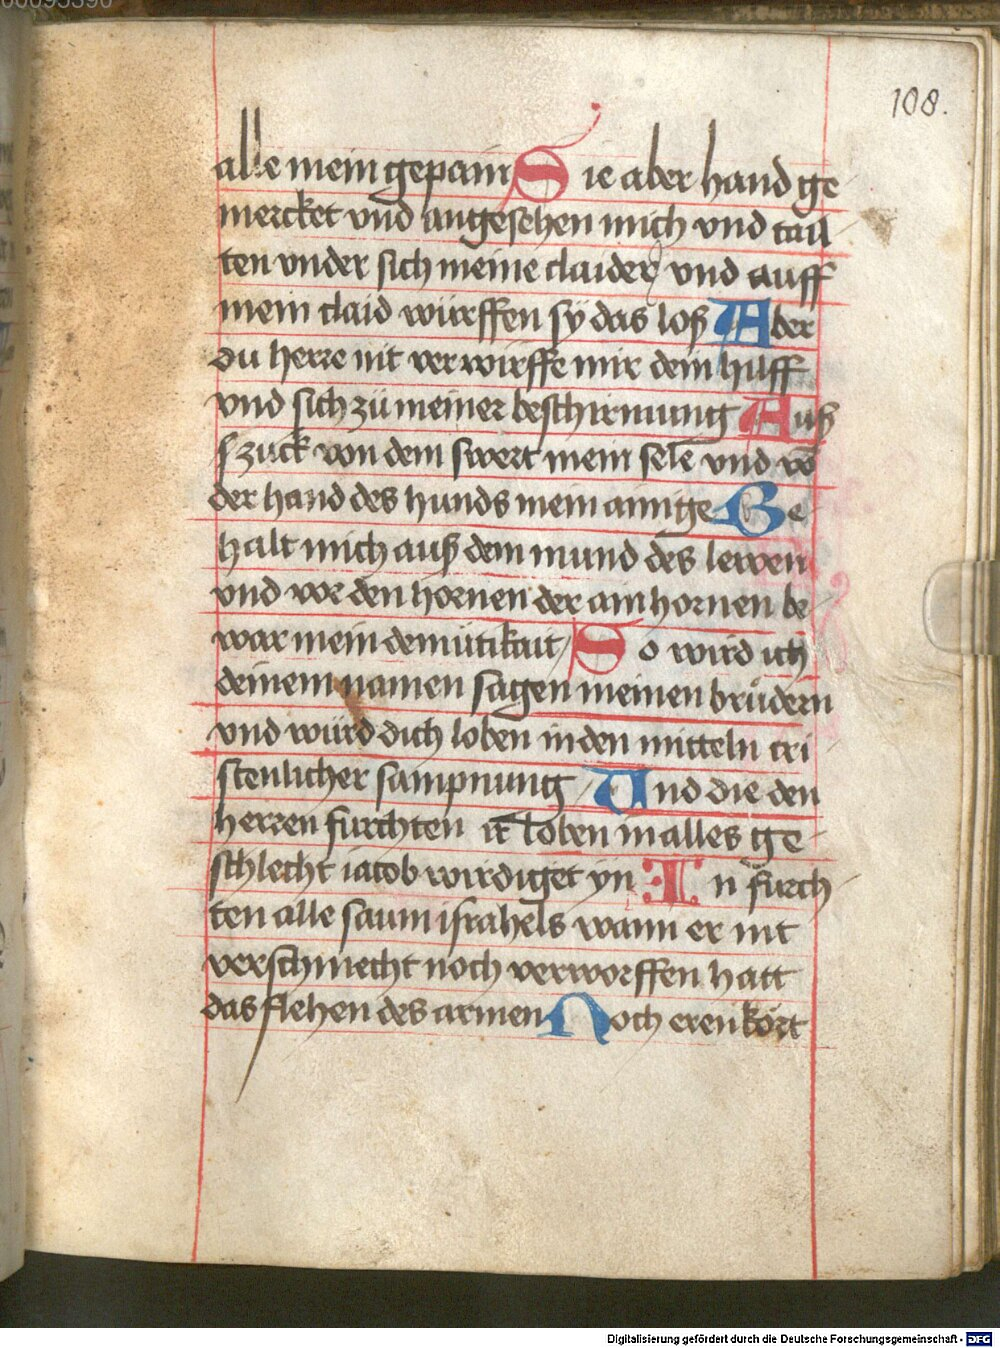 00095390
108.
alle mein gepain Sie aber hand ge
mercket vnd angesehen mich vnd tail
ten vnder sich meine claider vnd auff
mein claid würffen sÿ das loß Aber
du herre nit verwirffe mir dein hilff
vnd sich zů meiner beschirmung Auß
szuck von dem swert mein sele vnd võ
der hand des hunds mein ainige Be
halt mich auß dem mund des lewen
vnd vor den hornen der ainhornen be
war mein demütikait So wird ich
deinem namen sagen meinen brůdern
vnd würd dich loben in den mitteln cri
stenlicher sampnung Und die den
herren furchten ir loben in alles ge
schlecht iacob wirdiget yn In furch
ten alle saum israhels wann er nit
verschmecht noch verworffen hatt
das flehen des armen Noch er enkört
Digitalisierung gefördert durch die Deutsche Forschungsgemeinschaft - DFG